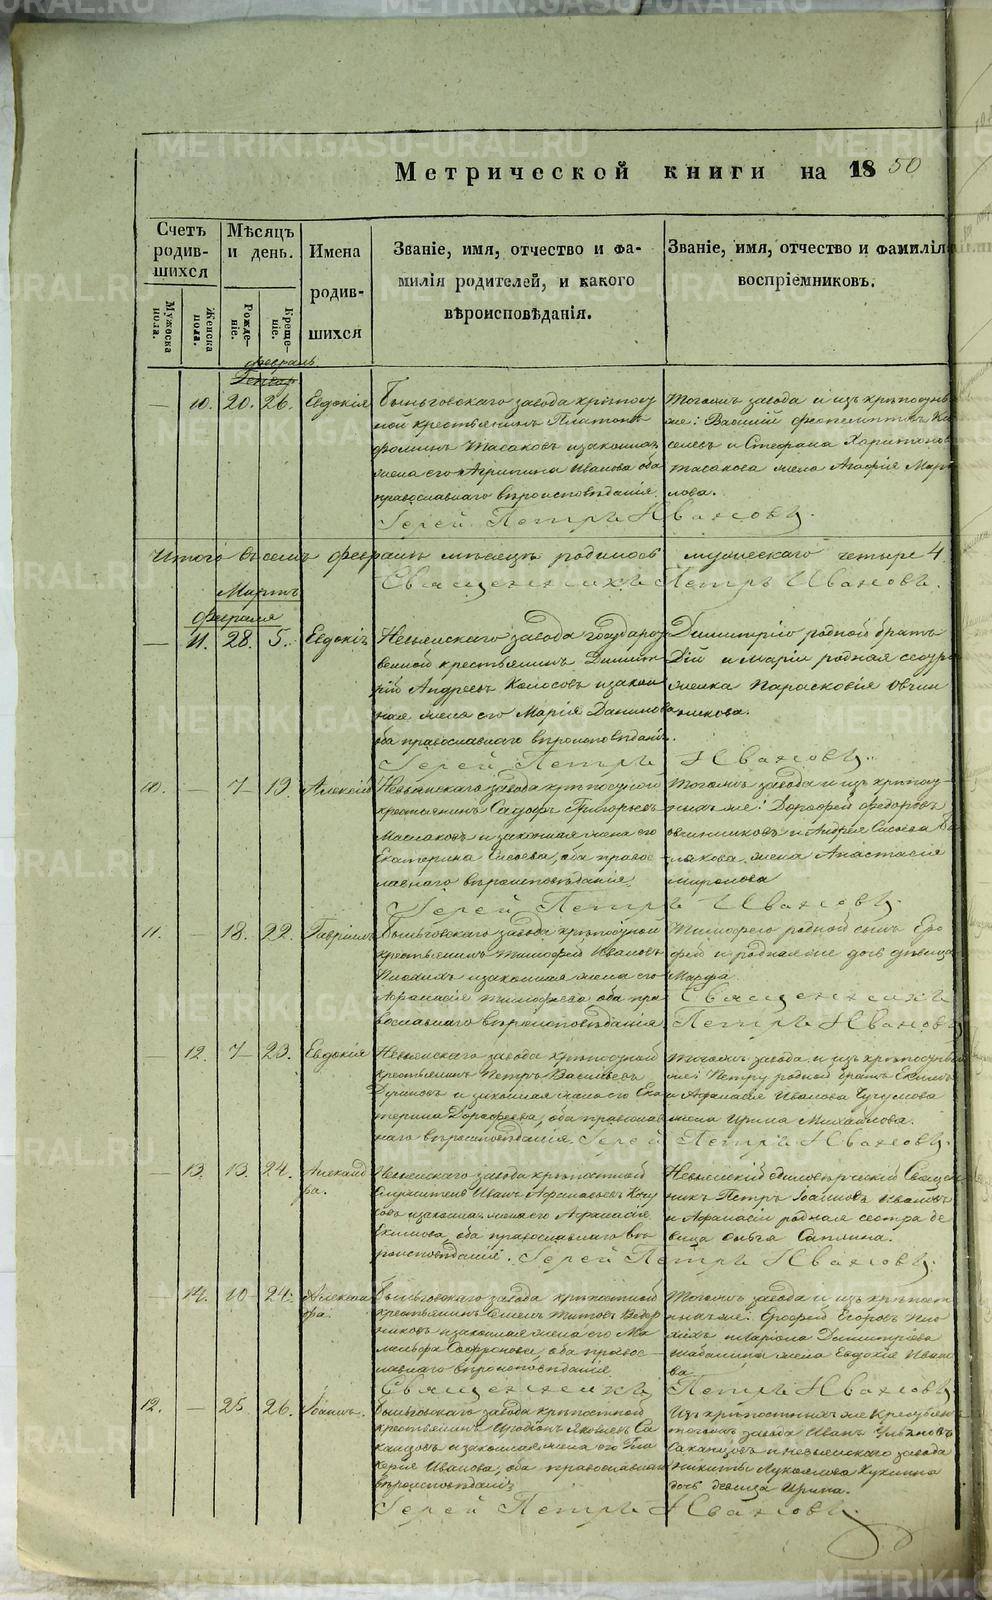 Метрической книги на 1850
Счетъ родившихся
Мѣсяцъ и день.
Имена родившихся
Званіе, имя, отчество и фамилія родителей, и какого вѣроисповѣданія.
Званіе, имя, отчество и фамилія воспріемниковъ.
Мужеска пола.
Женска пола.
Рожденіе.
Крещеніе.
февраль
— 10. 20. 26. Евдокія
Быньговскаго завода крѣпост
ной крестьянинъ Платонъ
Масаковъ и законная
жена его Агрипина Иванова оба
православнаго вѣроисповѣданія.
Тогожъ завода и изъ крѣпостныхъ
же: Василій
и Стефана Харитонов
жена Агафія
Іерей Петръ Ивановъ.
Итого въ семъ феврале мѣсяцѣ родилось мужескаго четыре 4
Священникъ Петръ Ивановъ.
Мартъ
Февраля
— 11. 28. 5. Евдокія
Невьянскаго завода государст
венной крестьянинъ Димит
рій Андреевъ Колосовъ и закон
ная жена его Марія Данилова
оба православнаго вѣроисповѣданія.
Димитрію родной братъ
и Маріи родная сестра
Парасковія Овчин
никова.
Іерей Петръ Ивановъ.
10. — 7 19. Алексій
Невьянскаго завода крѣпостной
крестьянинъ Григорьевъ
Маслаковъ и законная жена его
Екатерина Сысоева, оба правос
лавнаго вѣроисповѣданія.
Тогожъ завода и изъ крѣпост
ныхъ же: Дорофей Федоровъ
Овчинниковъ и Андрея Сысоева
жена Анастасія
Миронова
Іерей Петръ Ивановъ.
11. — 18. 22. Гавріилъ
Быньговскаго завода крѣпостной
крестьянинъ Тимофей Ивановъ
Плохихъ и законная жена его
Афанасія Тимофеева оба пра
вославнаго вѣроисповѣданія.
Тимофею родной сынъ Еро
фей и родная же дочь дѣвица
Марфа.
Священникъ
Петръ Ивановъ
— 12. 7 23. Евдокія
Невьянскаго завода крѣпостной
крестьянинъ Петръ Васильевъ
и законная жена его Ека
терина Дорофеева, оба православ
наго вѣроисповѣданія.
Тогожъ завода и изъ крѣпостныхъ
же: Петру родной братъ Екимъ
и Афанасія Иванова
жена Ирина Михайлова.
Іерей Петръ Ивановъ.
— 13. 13. 24. Александ
ра.
Невьянскаго завода крѣпостной
служитель Иванъ Афанасьевъ
и законная жена его Афанасія
Екимова, оба православнаго вѣ
роисповѣданія.
Невьянскій единовѣрческій Священ
никъ Петръ Іоанновъ Ивановъ
и Афанасіи родная сестра де
вица Ольга Саплина.
Іерей Петръ Ивановъ.
— 14. 10 24. Александ
ра.
Быньговскаго завода крѣпостной
крестьянинъ Семенъ Титовъ
и законная жена его Ма
ланьфа Софронова, оба правос
лавнаго вѣроисповѣданія
Тогожъ завода и изъ крѣпост
ныхъ же: Ерофей Егоровъ Пло
хихъ и Маріона Димитріева
Шабалина жена Евдокія Ивано
ва
Священникъ Петръ Ивановъ.
12. — 25. 26. Іоаннъ.
Быньговскаго завода крѣпостной
крестьянинъ Иродіонъ Яковлевъ Са
канцовъ и законная жена его Гли
керия Иванова, оба православнаго
вѣроисповѣданія
Изъ крѣпостныхъ же
тогожъ завода Иванъ Ульяновъ
Саканцовъ и невьянскаго завода
Никиты Лукоянова Кухнина
дочь девица Ирина.
Іерей Петръ Ивановъ.
METRIKI.GASU-URAL.RU